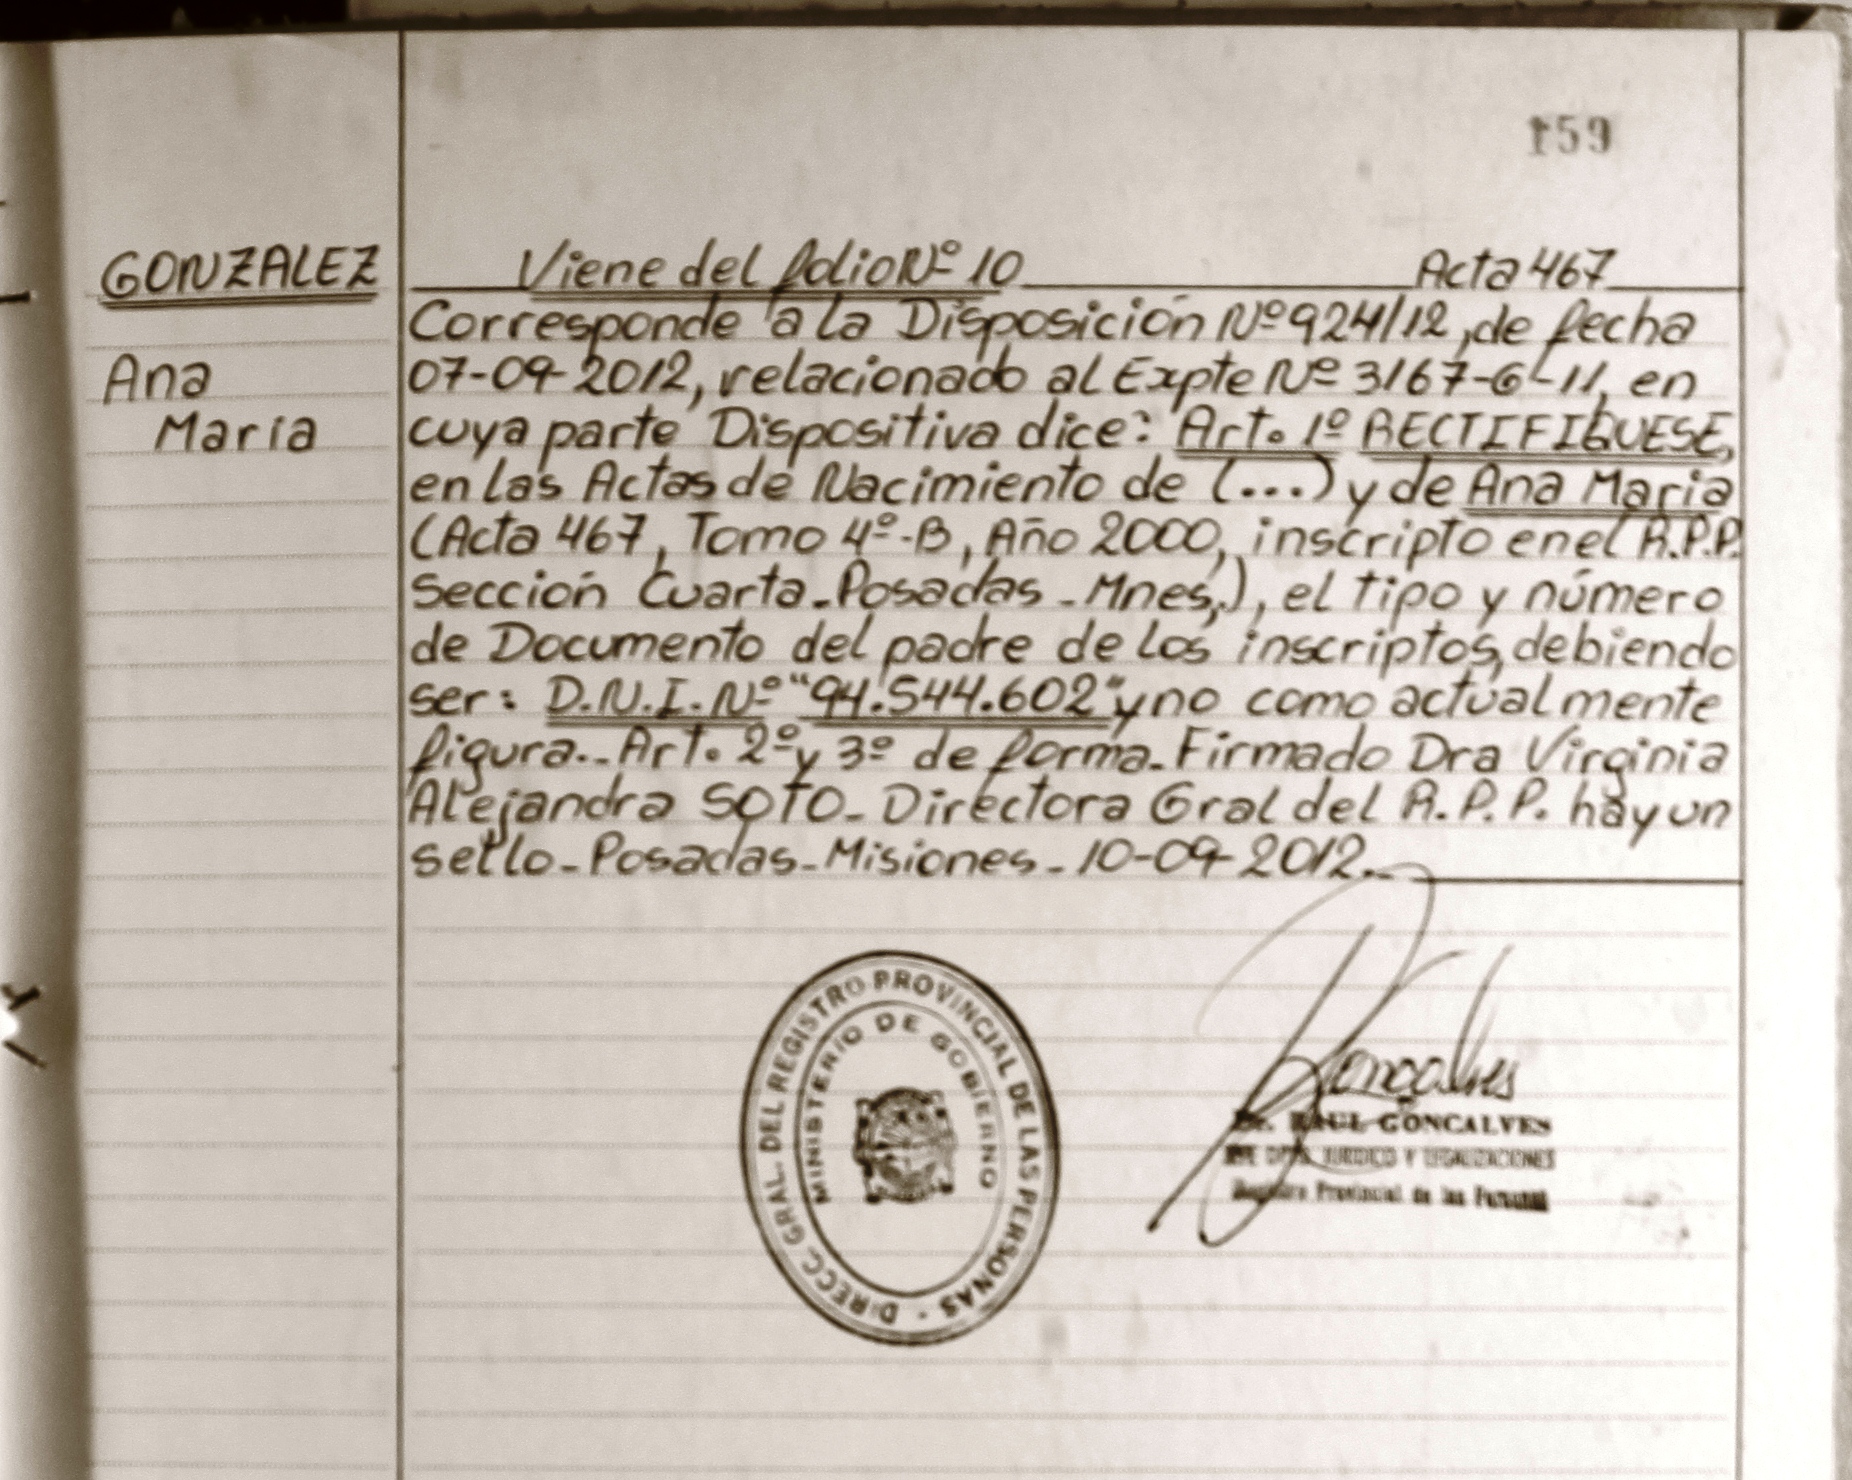 159
GONZALEZ
Ana
María
Viene del folio Nº 10 Acta 467
Corresponde a la Disposición Nº 924/12, de fecha
07-09-2012, relacionado al Expte Nº 3167-G-11, en
cuya parte Dispositiva dice: Art. 1º RECTIFIQUESE,
en las Actas de Nacimiento de (...) y de Ana María
(Acta 467, Tomo 4º-B, Año 2000, inscripto en el R.P.P.
Sección Cuarta-Posadas-Mnes,), el tipo y número
de Documento del padre de los inscriptos, debiendo
ser: D.N.I. Nº "94.544.602" y no como actualmente
figura.- Art. 2º y 3º de forma-Firmado Dra Virginia
Alejandra SOTO- Directora Gral del R.P.P. hay un
sello-Posadas-Misiones-10-09-2012.-
DIRECC. GRAL. DEL REGISTRO PROVINCIAL DE LAS PERSONAS
MINISTERIO DE GOBIERNO
Gonçalves
Dr. RAUL GONCALVES
JURIDICO Y LEGALIZACIONES
Registro Provincial de las Personas